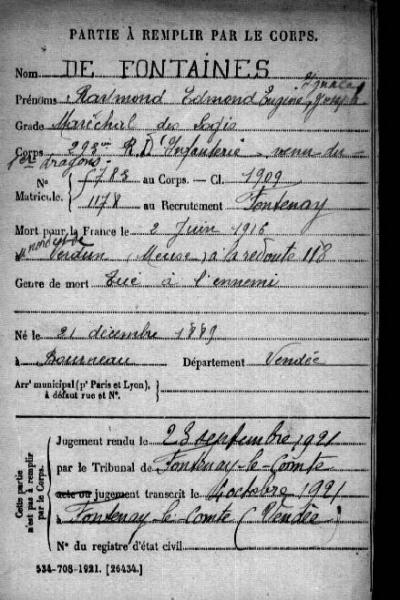 PARTIE À REMPLIR PAR LE CORPS.
Nom DE FONTAINES
Prénoms Raymond Edmond Eugène Ignace Joseph
Grade Maréchal des Logis
Corps 293me R. D'Infanterie - venu du
1er dragons.
N° 5783 au Corps. — Cl. 1909
Matricule. 1178 au Recrutement Fontenay
Mort pour la France le 2 Juin 1916
à nord est de Verdun (Meuse) à la redoute 118
Genre de mort Tué à l'ennemi
Né le 21 décembre 1889
à Bourneau Département Vendée
Arr' municipal (p' Paris et Lyon),
à défaut rue et N°.
Cette partie
n'est pas à remplir
par le Corps.
Jugement rendu le 23 septembre 1921
par le Tribunal de Fontenay-le-Comte
acte ou jugement transcrit le 4 octobre 1921
à Fontenay-le-Comte (Vendée)
N° du registre d'état civil
534-708-1921. [26434.]